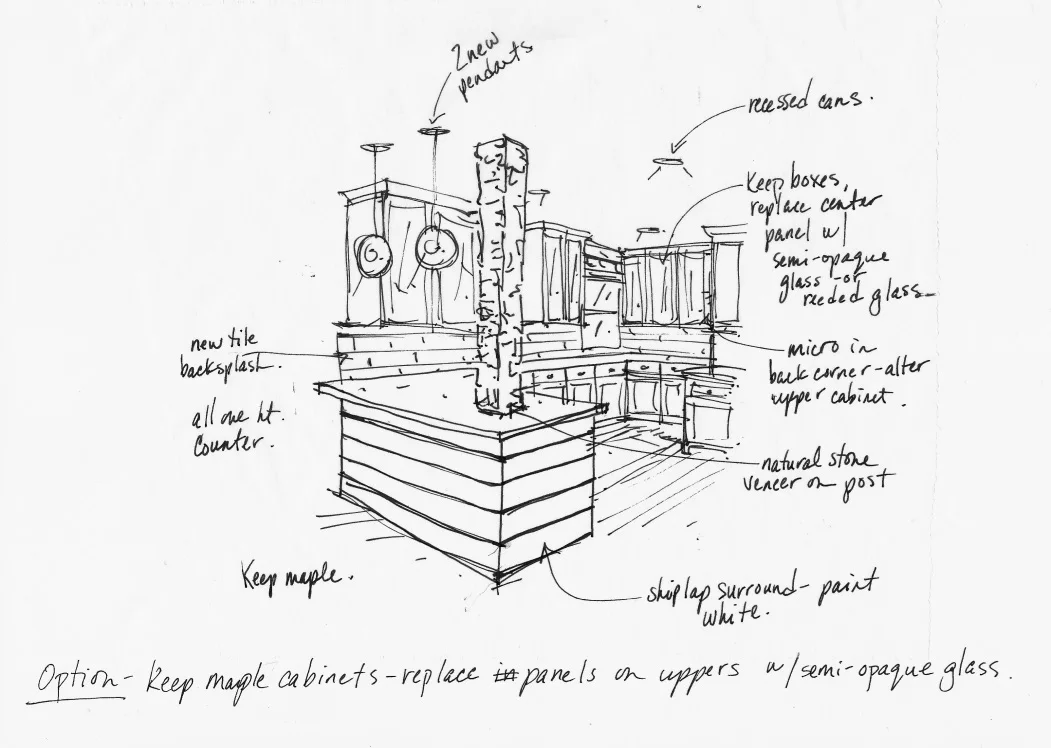 2 new
pendants
recessed cans.
Keep boxes,
replace center
panel w/
semi-opaque
glass -or
reeded glass
new tile
backsplash.
micro in
back corner-alter
upper cabinet.
all one ht.
counter.
natural stone
veneer on post
Keep maple.
shiplap surround- paint
white.
Option- Keep maple cabinets-replace panels on uppers w/semi-opaque glass.